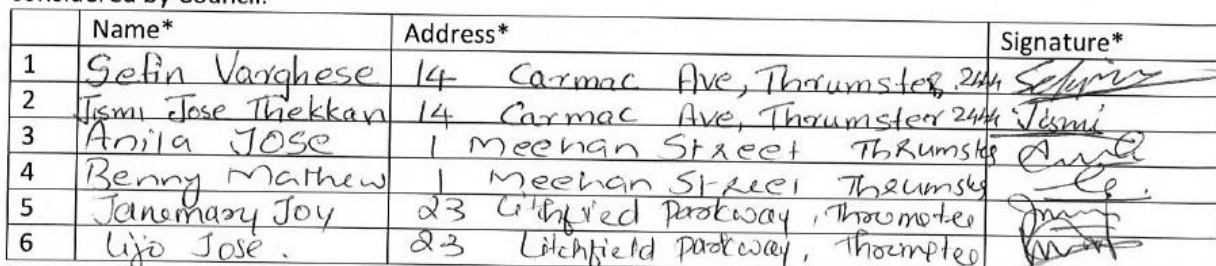 considered by Council.
Name* Address* Signature*
1 Sefin Varghese 14 Carmac Ave, Thrumster
2 Jismi Jose Thekkan 14 Carmac Ave, Thrumster 2444 Jismi
3 Anila JOSE 1 Meehan Street ThRumster
4 Benny Mathew 1 Meehan Street
5 Janemary Joy 23 Parkway,
6 Lijo Jose. 23 Litchfield parkway,